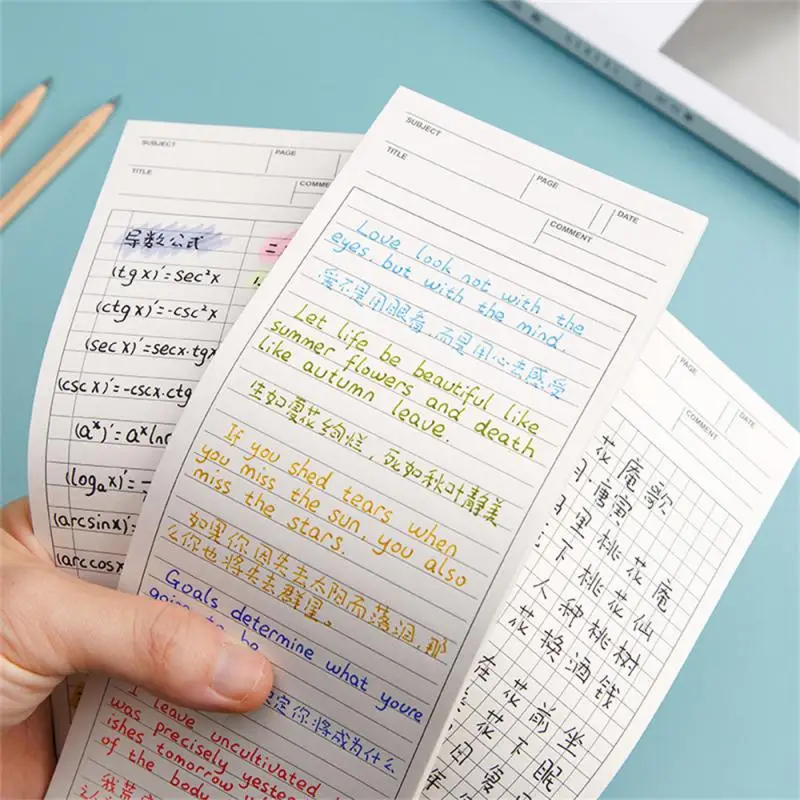 SUBJECT
PAGE
TITLE
COMME
导数公式
二
(tg x)'=sec²x
(ctg x)'=-csc²x
(sec x)'=secx·tgx
(csc x)'=-cscx·ctg
(aˣ)'=aˣln
(logₐx)'=
(arcsinx)'=
(arccosx
SUBJECT
PAGE
DATE
TITLE
COMMENT
Love look not with the
eyes, but with the mind.
爱不是用眼看,而是用心去感受
Let life be beautiful like
summer flowers and death
like autumn leave.
生如夏花绚烂,死如秋叶静美
If you shed tears when
you miss the sun, you also
miss the stars.
如果你因失去太阳而落泪,那
么你也将失去群星。
Goals determine what youre
going to be
定你将成为什么
I leave uncultivated
was precisely yester
ishes tomorrow
of the body
我荒
PAGE
DATE
COMMENT
花庵歌
唐寅
里桃花庵
下桃花仙
人种桃树
花换酒钱
在花前坐
花下眠
日复
年